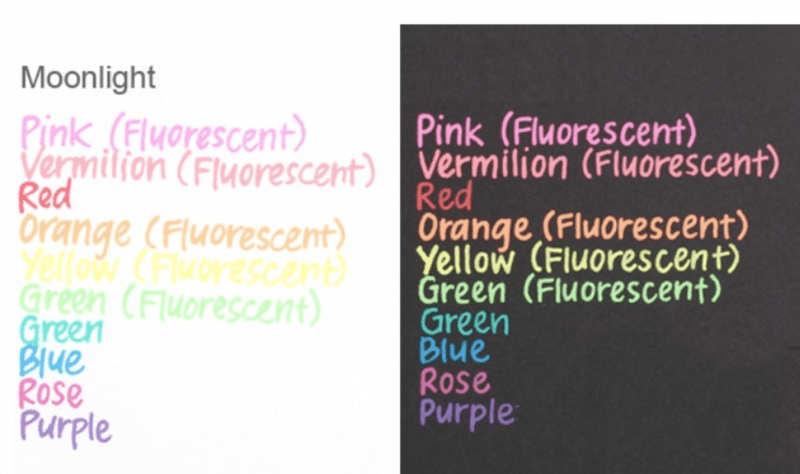 Moonlight
Pink (Fluorescent)
Vermilion (Fluorescent)
Red
Orange (Fluorescent)
Yellow (Fluorescent)
Green (Fluorescent)
Green
Blue
Rose
Purple
Pink (Fluorescent)
Vermilion (Fluorescent)
Red
Orange (Fluorescent)
Yellow (Fluorescent)
Green (Fluorescent)
Green
Blue
Rose
Purple